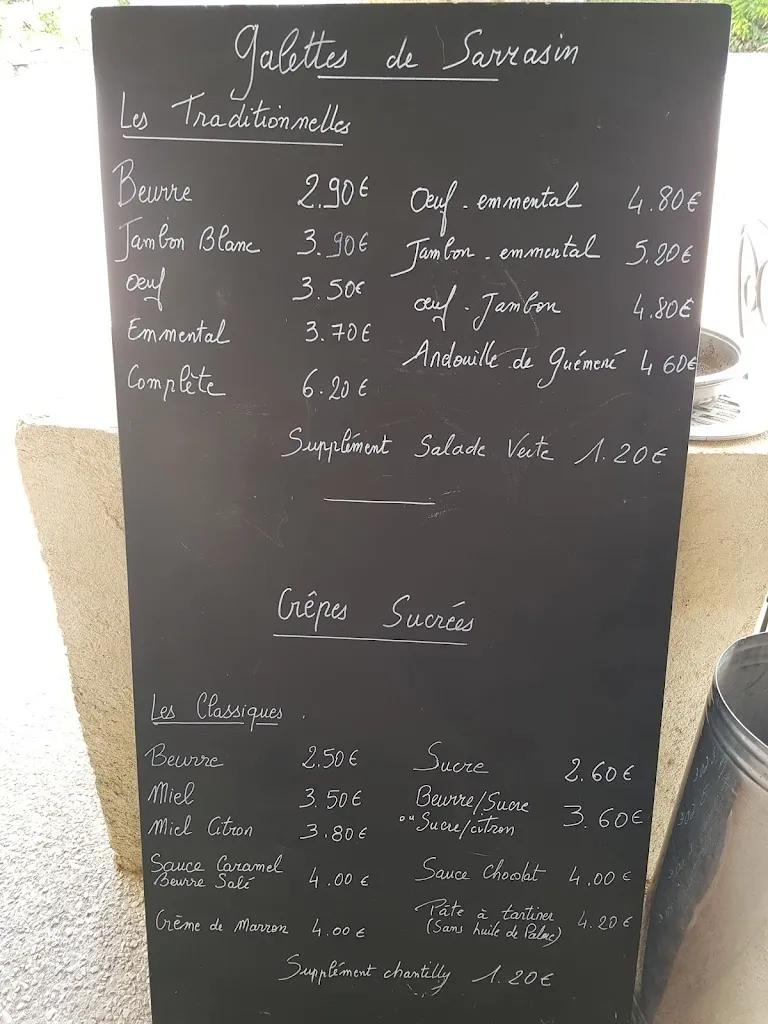 Galettes de Sarrasin
Les Traditionnelles
Beurre 2.90€
Jambon Blanc 3.90€
Œuf 3.50€
Emmental 3.70€
Complète 6.20€
Œuf - emmental 4.80€
Jambon - emmental 5.20€
Œuf - Jambon 4.80€
Andouille de Guémené 4.60€
Supplément Salade Verte 1.20€
Crêpes Sucrées
Les Classiques.
Beurre 2.50€
Miel 3.50€
Miel Citron 3.80€
Sauce Caramel
Beurre Salé 4.00€
Crème de Marron 4.00€
Sucre 2.60€
Beurre/Sucre
ou Sucre/citron 3.60€
Sauce Chocolat 4.00€
Pâte à tartiner
(Sans huile de Palme) 4.20€
Supplément chantilly 1.20€